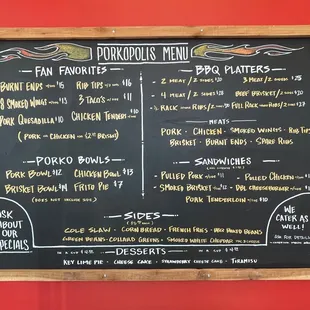 PORKOPOLIS MENU
FAN FAVORITES
BURNT ENDS $15
RIB TIPS $16
8 SMOKED WINGS $13
3 TACO'S $11
PORK QUESADILLA $10
CHICKEN TENDERS $10
(PORK OR CHICKEN
PORKO BOWLS
PORK BOWL $12
CHICKEN BOWL $13
BRISKET BOWL
FRITO PIE $7
(DOES NOT INCLUDE
ASK
ABOUT
OUR
SPECIALS
BBQ PLATTERS
2 MEAT
3 MEAT
$25
4 MEAT
BEEF BRISKET
$20
RACK
FULL RACK
MEATS
PORK - CHICKEN - SMOKED WINGS - RIB TIPS
BRISKET - BURNT ENDS - SPARE RIBS
SANDWICHES
PULLED PORK $11
PULLED CHICKEN
SMOKED BRISKET $12
DBL CHEESEBURGER
PORK TENDERLOIN $10
WE
CATER AS
WELL!
ASK FOR DETAILS
SIDES
COLE SLAW - CORN BREAD - FRENCH FRIES - BAKED BEANS
GREEN BEANS - COLLARD GREENS - SMOKED WHITE CHEDDAR MAC N CHEESE
DESSERTS
KEY LIME PIE - CHEESE CAKE - STRAWBERRY CHEESE CAKE - TIRAMISU